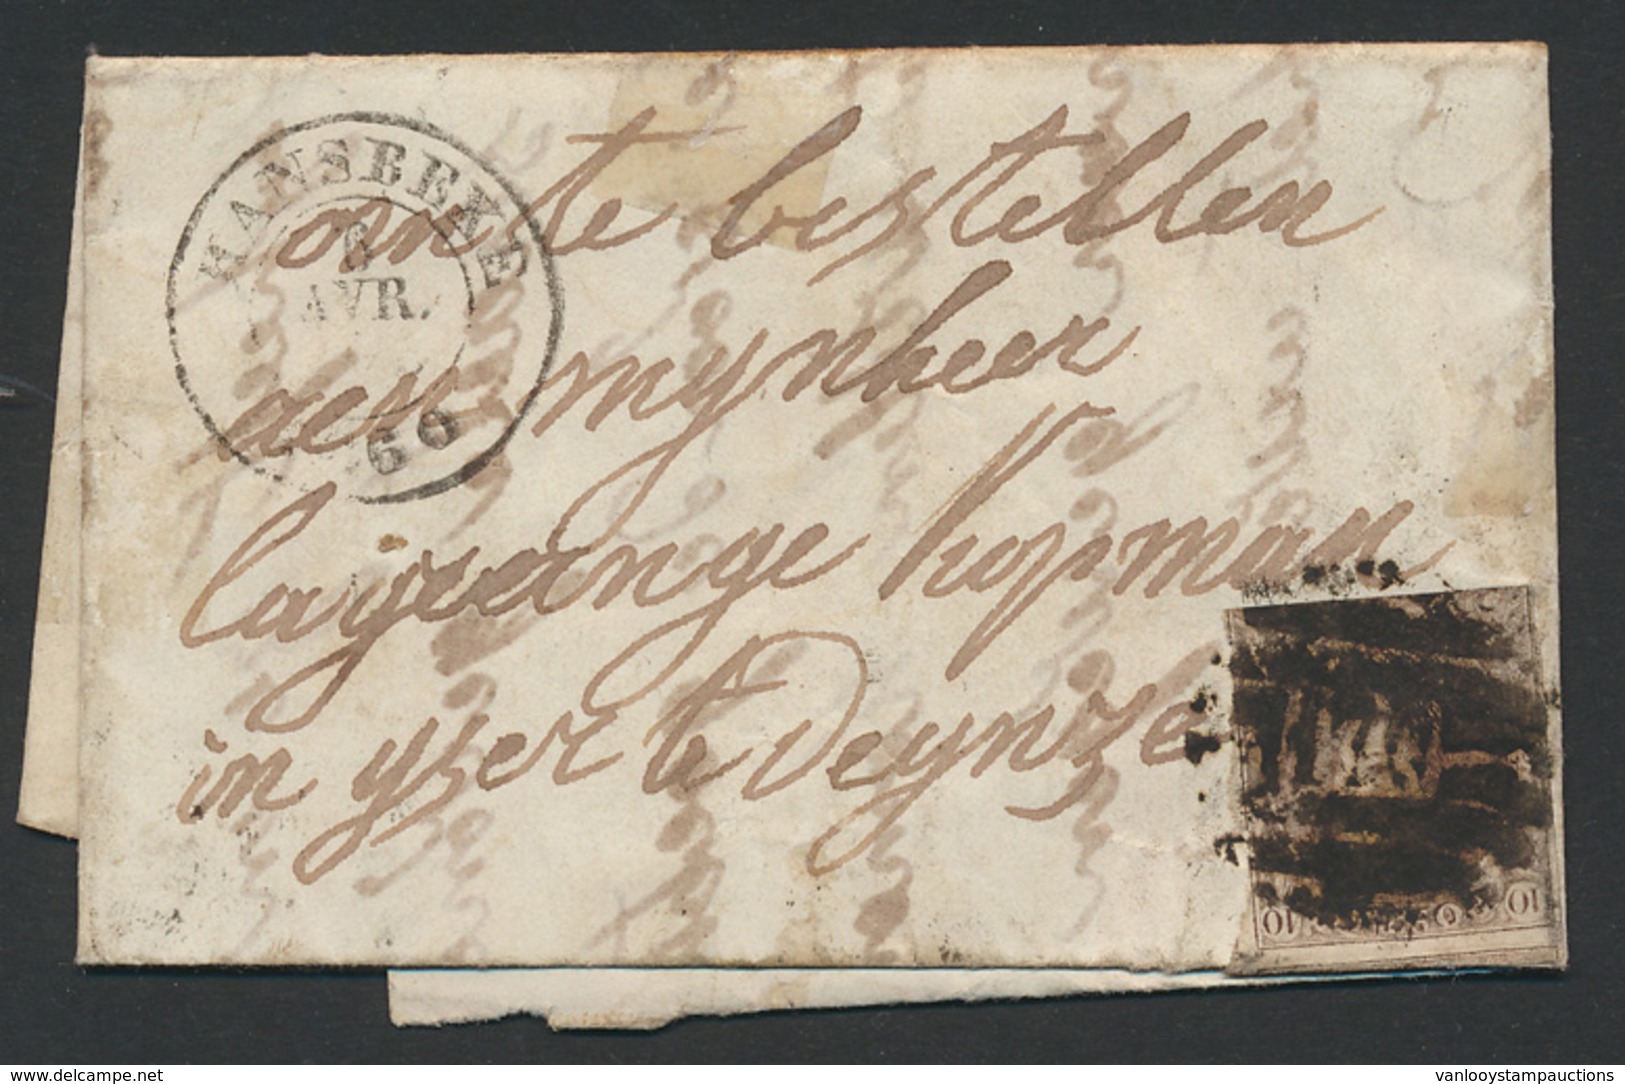 HANSBEKE
6
AVR.
60
om te bestellen
aen mynheer
lagrange kopman
in yser te Deynze
10 10
delcampe.net
vanlooystampauctions